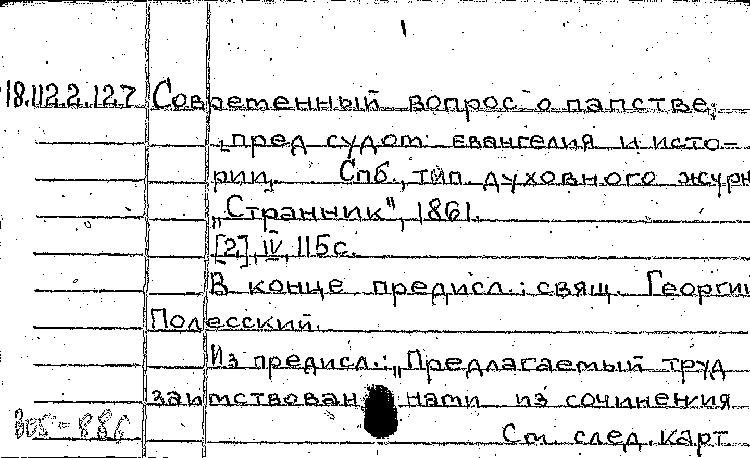 18.112.2.127 Современный вопрос о папстве,
пред судом евангелия и исто-
рии. Спб., тип. духовного журн
„Странник", 1861.
[2], IV, 115 с.
В конце предисл.: свящ. Георгий
Полесский.
Из предисл.: „Предлагаемый труд
заимствован нами из сочинения
См. след. карт